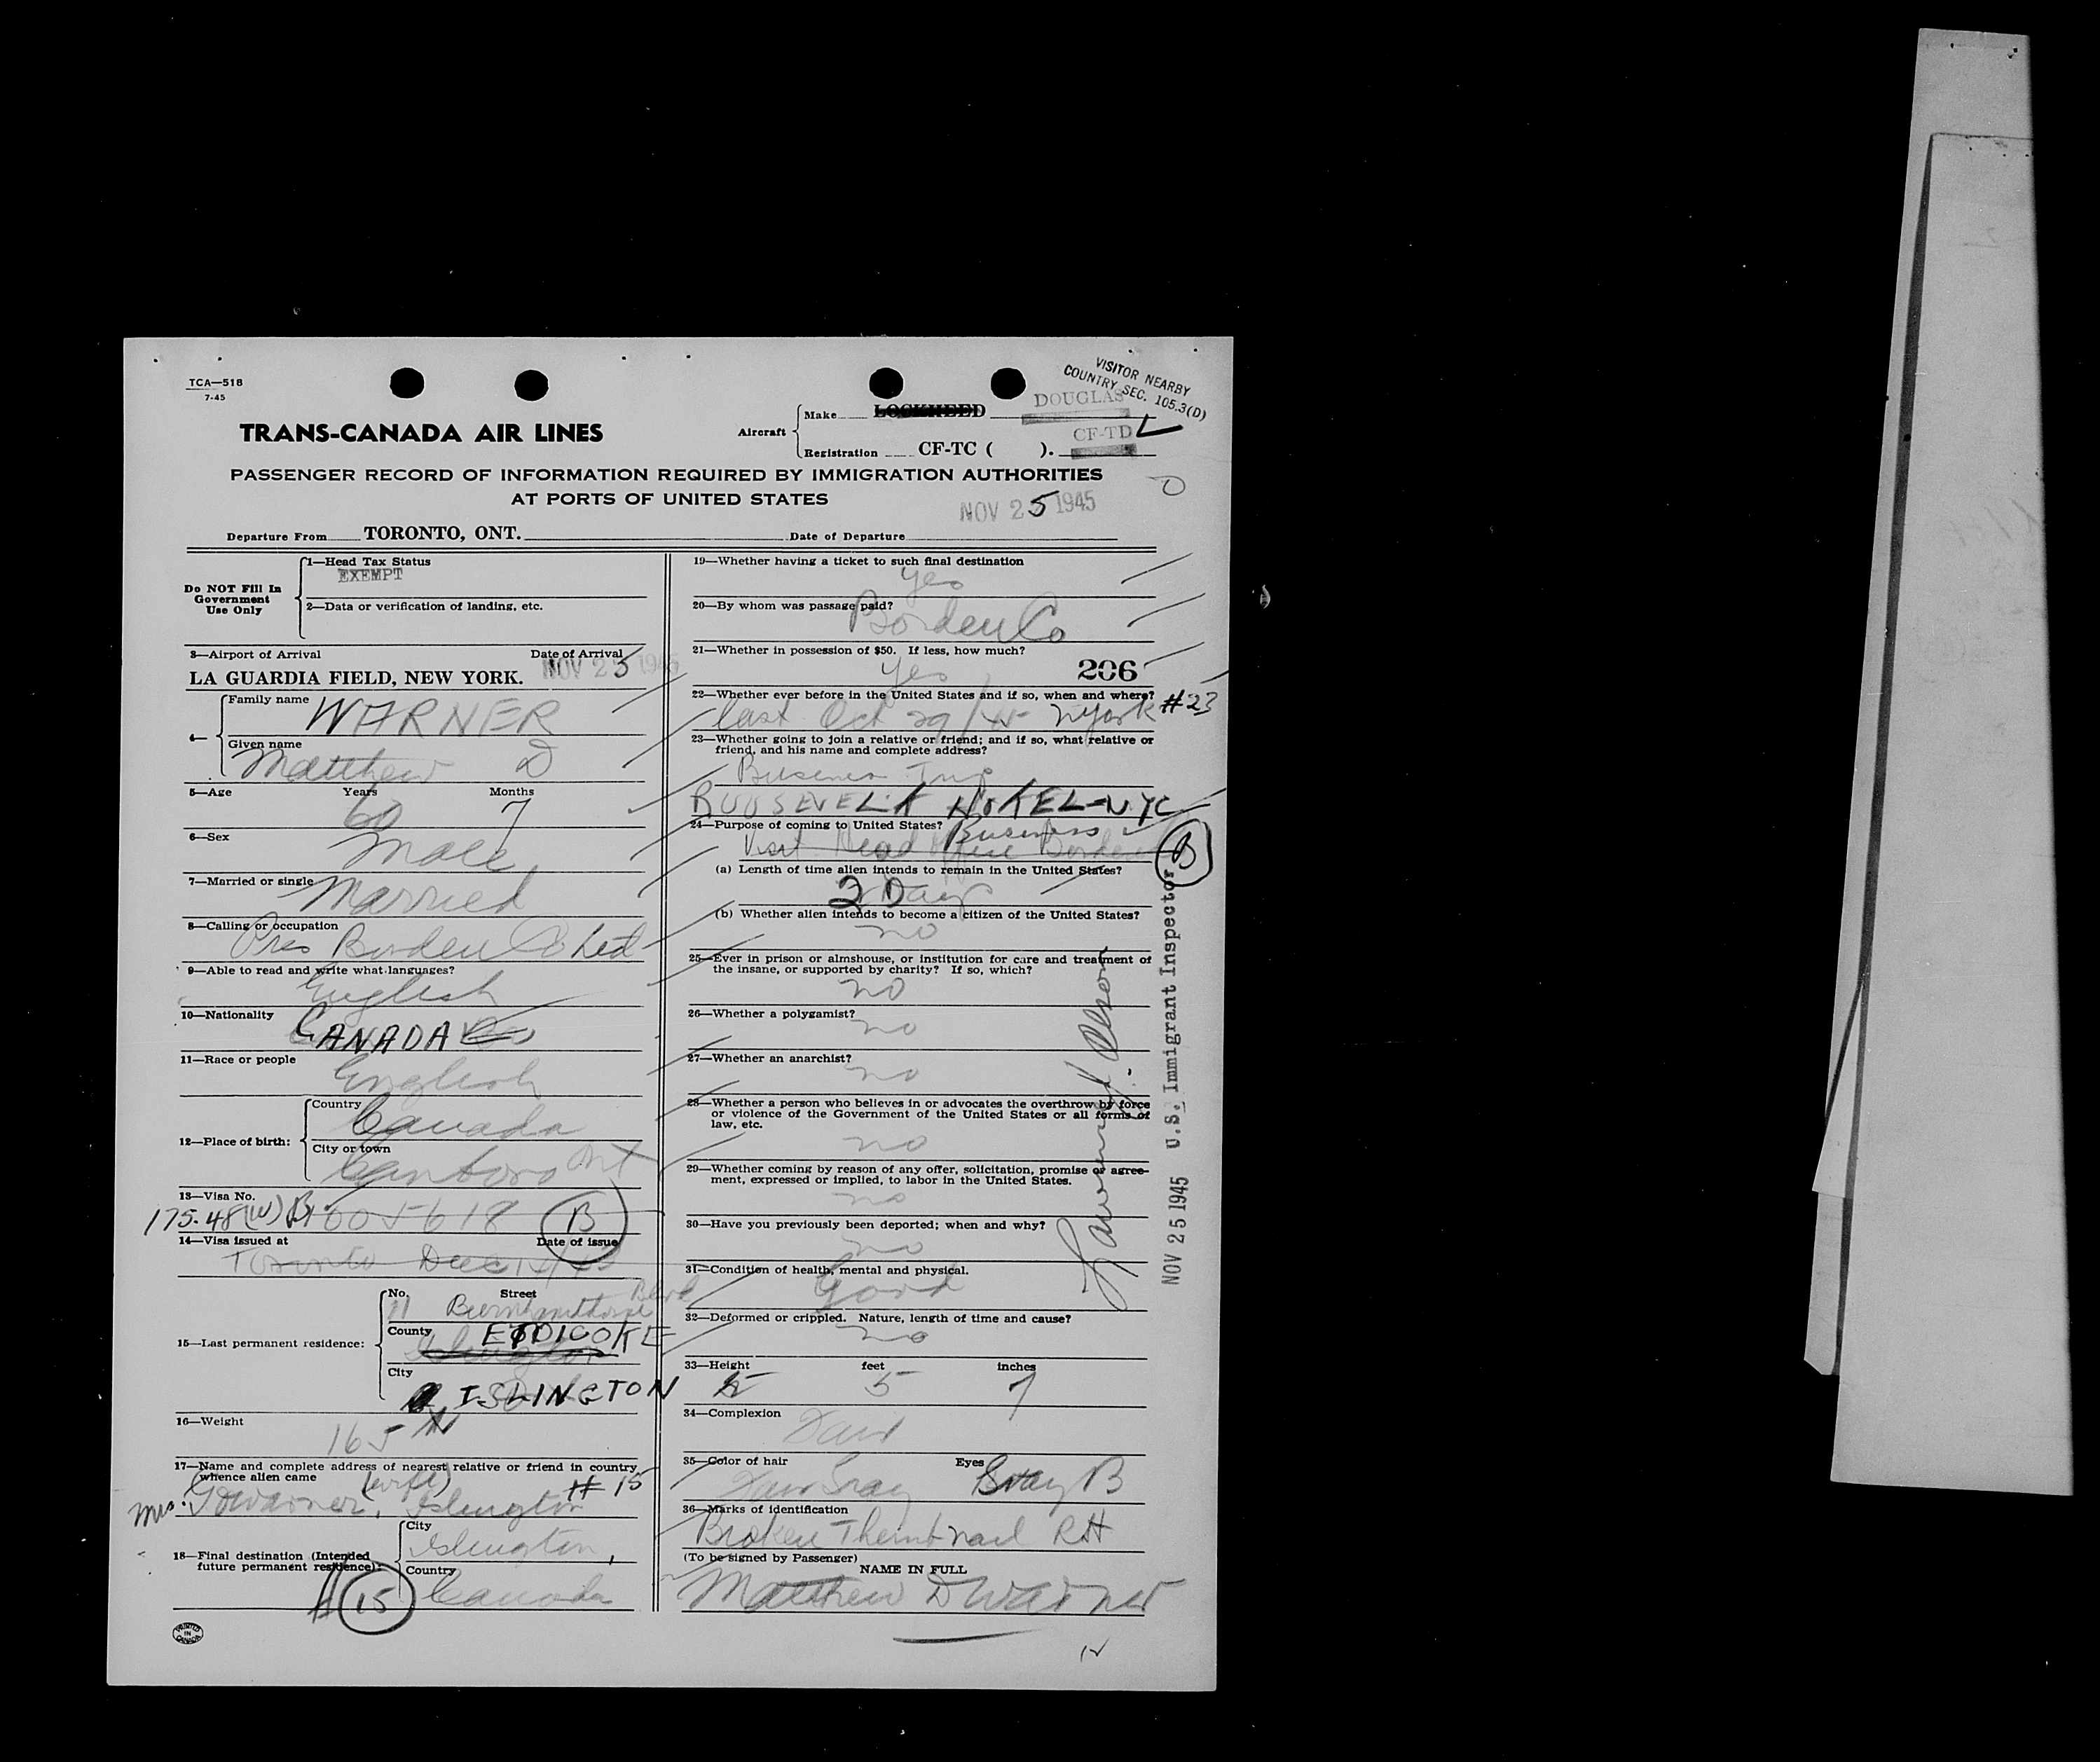 TCA—518
7-45
VISITOR NEARBY
COUNTRY SEC. 105.3(D)
TRANS-CANADA AIR LINES
Aircraft
Make LOCKHEED DOUGLAS
Registration CF-TC ( ). CF-TD L
PASSENGER RECORD OF INFORMATION REQUIRED BY IMMIGRATION AUTHORITIES
AT PORTS OF UNITED STATES
NOV 25 1945
Departure From TORONTO, ONT. Date of Departure
Do NOT Fill In
Government
Use Only
1—Head Tax Status
EXEMPT
2—Data or verification of landing, etc.
3—Airport of Arrival Date of Arrival
LA GUARDIA FIELD, NEW YORK. NOV 25 1945
4—
Family name WARNER
Given name
Matthew D
5—Age Years Months
60 7
6—Sex
Male
7—Married or single
Married
8—Calling or occupation
Pres Borden Co Ltd
9—Able to read and write what languages?
English
10—Nationality
CANADA
11—Race or people
English
12—Place of birth:
Country
Canada
City or town
Canboro Ont
13—Visa No.
175.48(W) B 005618 B
14—Visa issued at Date of issue
Toronto Dec
15—Last permanent residence:
No. Street
11 Burnhamthorpe Blvd
County ETOBICOKE
City
ISLINGTON
16—Weight
165
17—Name and complete address of nearest relative or friend in country
whence alien came (wife) #15
Mrs. Warner, Islington
18—Final destination (Intended
future permanent residence):
City
Islington,
Country
Canada
#15
PRINTED IN CANADA
19—Whether having a ticket to such final destination
Yes
20—By whom was passage paid?
Borden Co
21—Whether in possession of $50. If less, how much?
Yes 206
22—Whether ever before in the United States and if so, when and where? #23
last Oct 29/45 NYork
23—Whether going to join a relative or friend; and if so, what relative or
friend, and his name and complete address?
Business Trip
ROOSEVELT HOTEL-N.Y.C
24—Purpose of coming to United States? Business
Visit Head Office Borden B
(a) Length of time alien intends to remain in the United States?
2 Days
(b) Whether alien intends to become a citizen of the United States?
no
25—Ever in prison or almshouse, or institution for care and treatment of
the insane, or supported by charity? If so, which?
no
26—Whether a polygamist?
no
27—Whether an anarchist?
no
28—Whether a person who believes in or advocates the overthrow by force
or violence of the Government of the United States or all forms of
law, etc.
no
29—Whether coming by reason of any offer, solicitation, promise or agree-
ment, expressed or implied, to labor in the United States.
no
30—Have you previously been deported; when and why?
no
31—Condition of health, mental and physical.
Good
32—Deformed or crippled. Nature, length of time and cause?
no
33—Height feet inches
5 7
34—Complexion
Fair
35—Color of hair Eyes
Gray Gray B
36—Marks of identification
Broken Thumb nail RH
(To be signed by Passenger)
NAME IN FULL
Matthew D Warner
NOV 25 1945 U.S. Immigrant Inspector